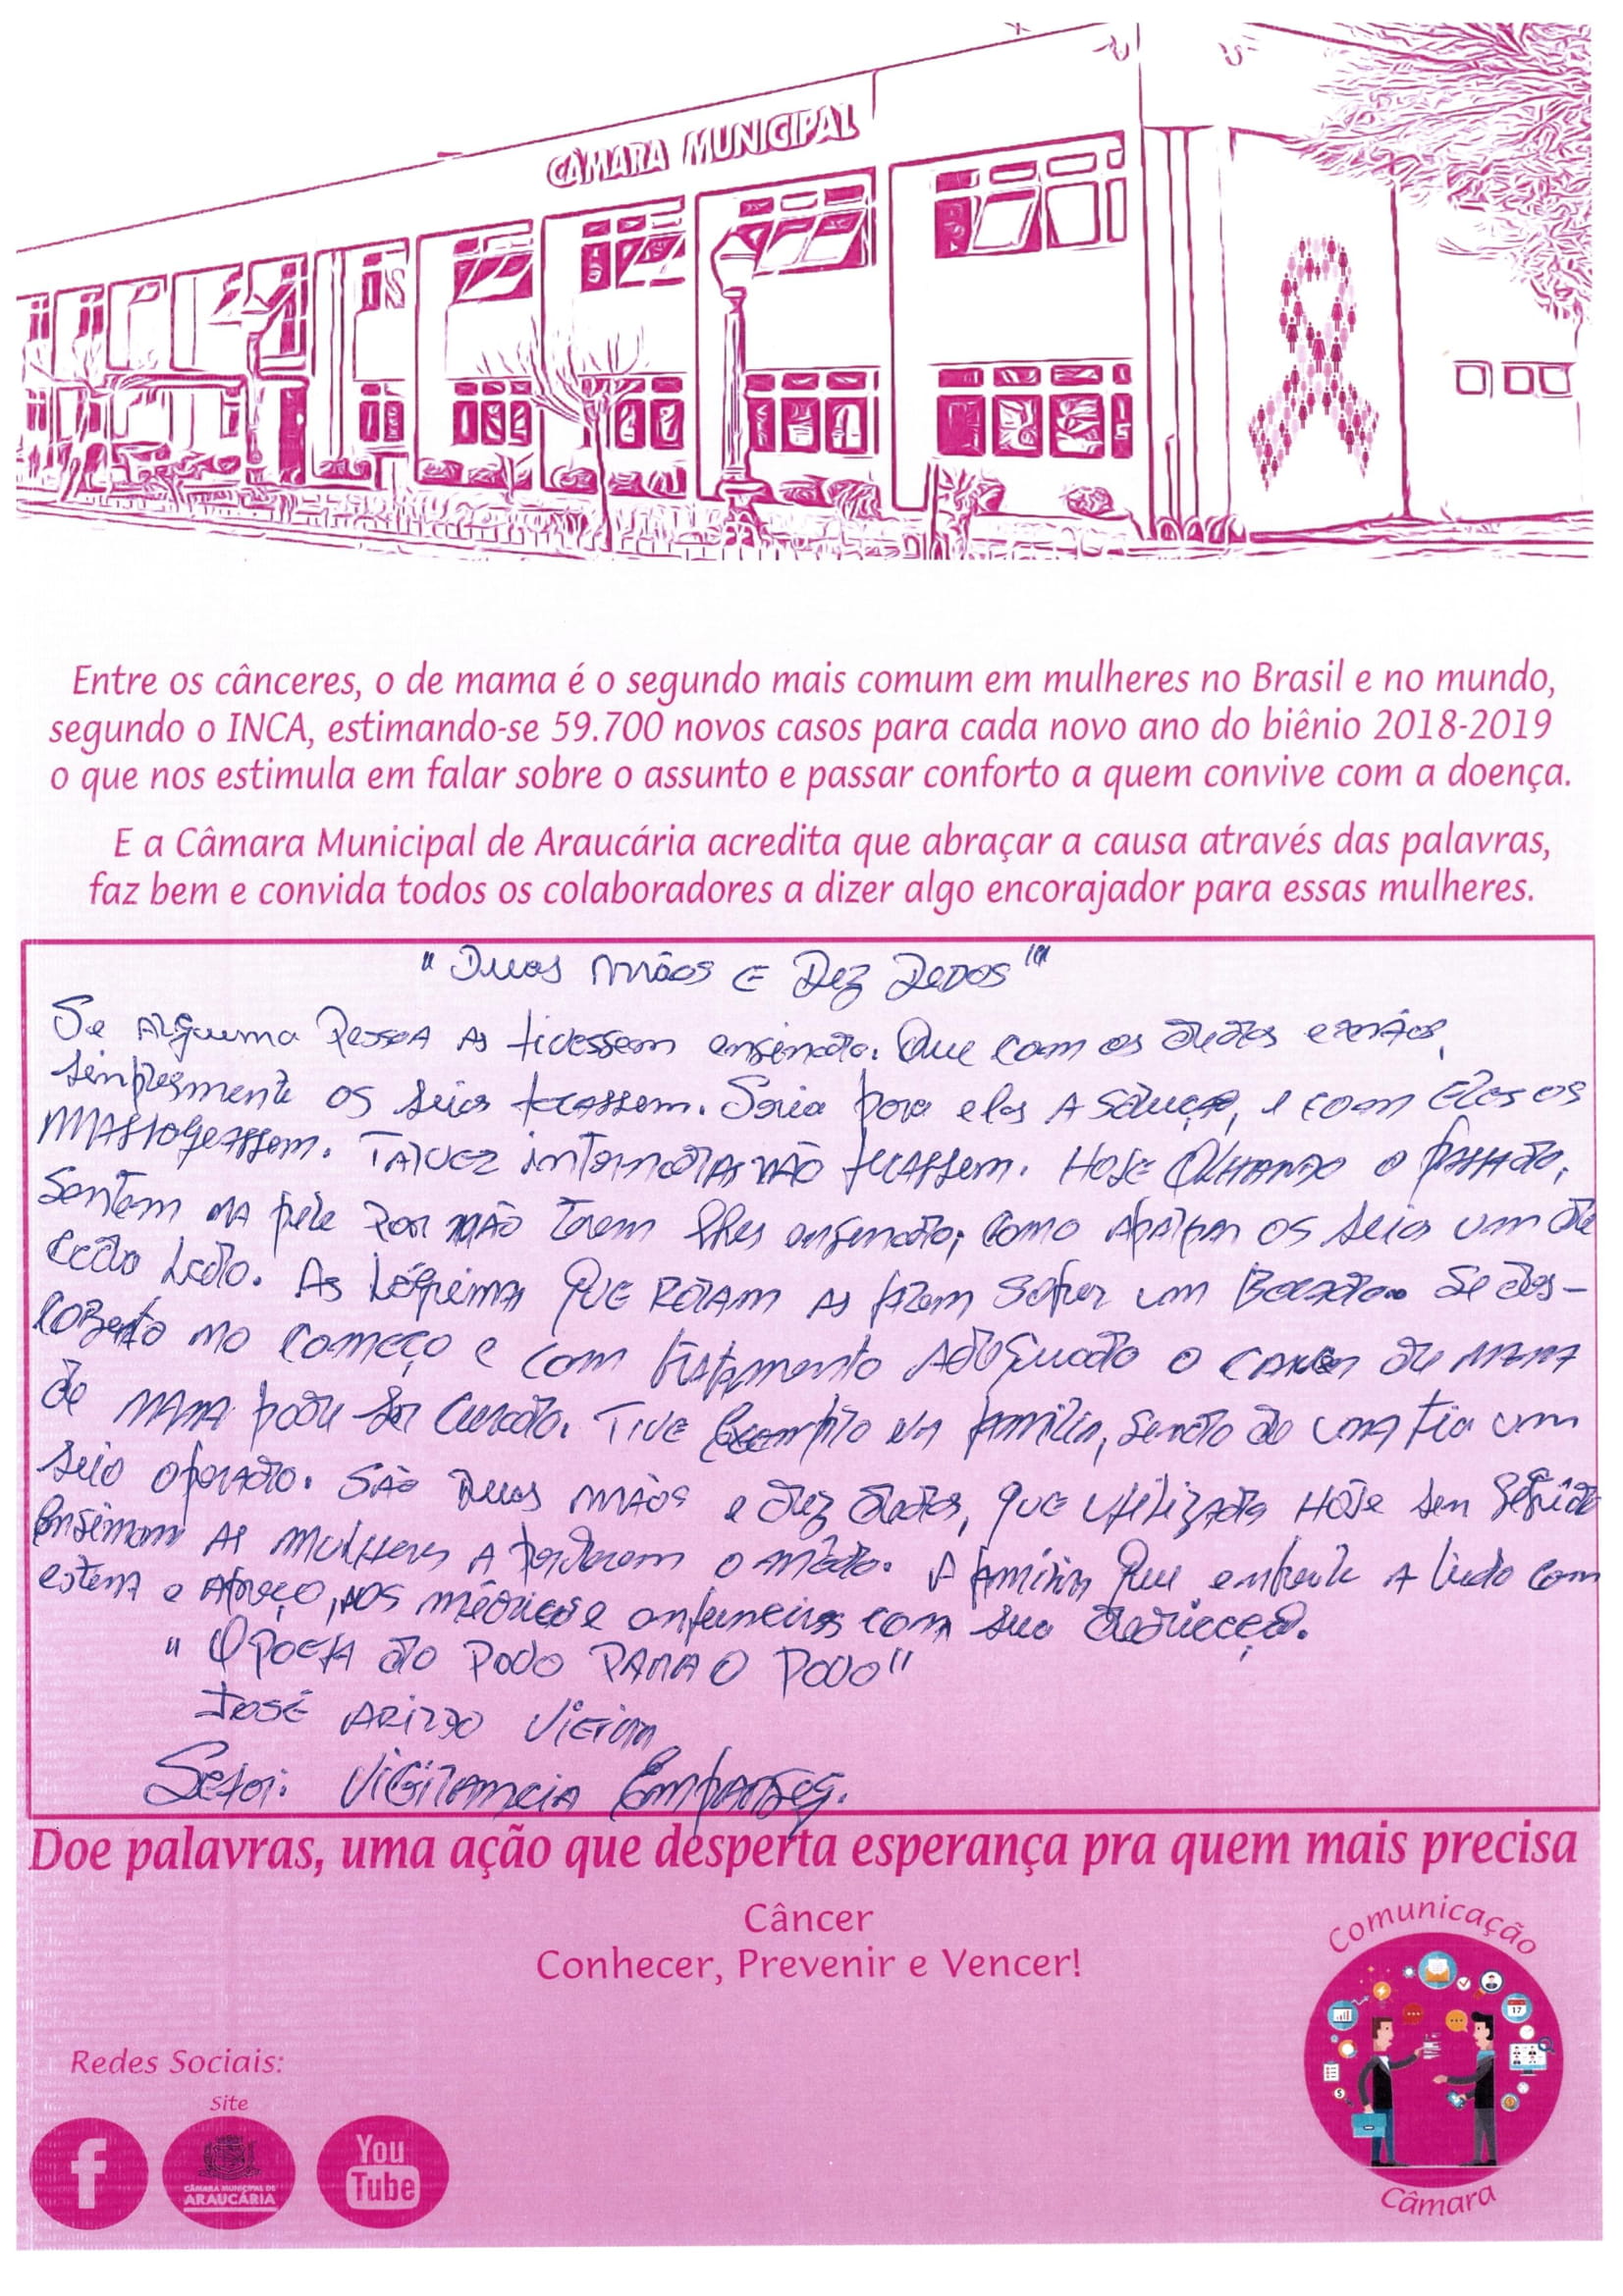 CÂMARA MUNICIPAL
Entre os cânceres, o de mama é o segundo mais comum em mulheres no Brasil e no mundo,
segundo o INCA, estimando-se 59.700 novos casos para cada novo ano do biênio 2018-2019
o que nos estimula em falar sobre o assunto e passar conforto a quem convive com a doença.
E a Câmara Municipal de Araucária acredita que abraçar a causa através das palavras,
faz bem e convida todos os colaboradores a dizer algo encorajador para essas mulheres.
"Duas mãos e Dez Dedos"
Se Alguma Pessoa As tivessem ensinado. Que com os dedos e mãos,
simplesmente os seios tocassem. Seria para elas A Salvação, e com Eles os
MAssageassem. TAlvez internadas não ficassem. Hoje Olhando o passado,
Sentem na pele Por não Terem lhes ensinado, como Apalpar os seios um de
cada Lado. As Lágrimas Que Rolam As fazem Sofrer um Bocado. Se des-
coberto no começo e com tratamento Adequado o cancer de mama
de mama pode ser Curado. Tive Exemplo na família, sendo de uma tia um
seio operado. São Duas mãos e dez dedos, que utilizada Hoje sem
Ensinam As mulheres A perderem o medo. A família Que enfrente A tudo com
estema e Apreço, aos médicos e enfermeiros com sua dedicação.
"O poeta do Povo PARA O Povo"
José Arildo Vieira
Setor: Vigilancia
Doe palavras, uma ação que desperta esperança pra quem mais precisa
Câncer
Conhecer, Prevenir e Vencer!
Comunicação
17
Câmara
Redes Sociais:
Site
f
CÂMARA MUNICIPAL DE
ARAUCÁRIA
You
Tube